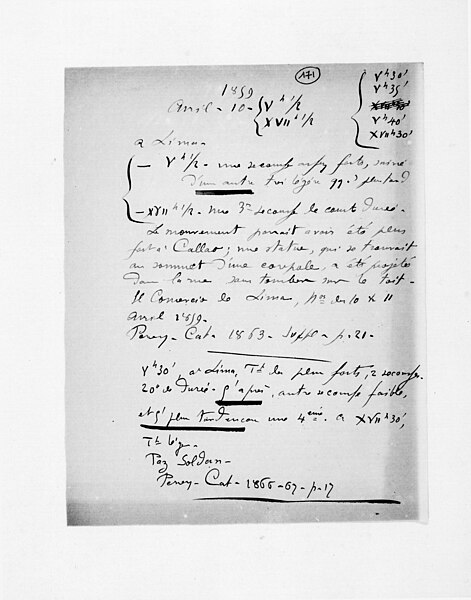 171
1859
Avril - 10 - V h 1/2
XVII h 1/2
V h 30'
V h 35'
V h 40'
XVII h 30'
a Lima -
- V h 1/2 - une secousse assez forte, suivie
d'une autre très légère qq. s plus tard
- XVII h 1/2 - une 3e secousse de courte durée -
Le mouvement paraît avoir été plus
fort à Callao ; une statue, qui se trouvait
au sommet d'une coupole, a été projetée
dans la rue sans tomber sur le toit -
El Comercio de Lima, nos du 10 & 11
Avril 1859 -
Perrey - Cat - 1863 - Suppl - p. 21 -
V h 30', a Lima, Tt de la plus forte, 2 secousses.
20s de durée - 5' après, autre secousse faible,
et 5' plus tard encore une 4ème. a XVII h 30',
Tt lég -
Paz Soldan -
Perrey - Cat - 1866-67 - p. 17